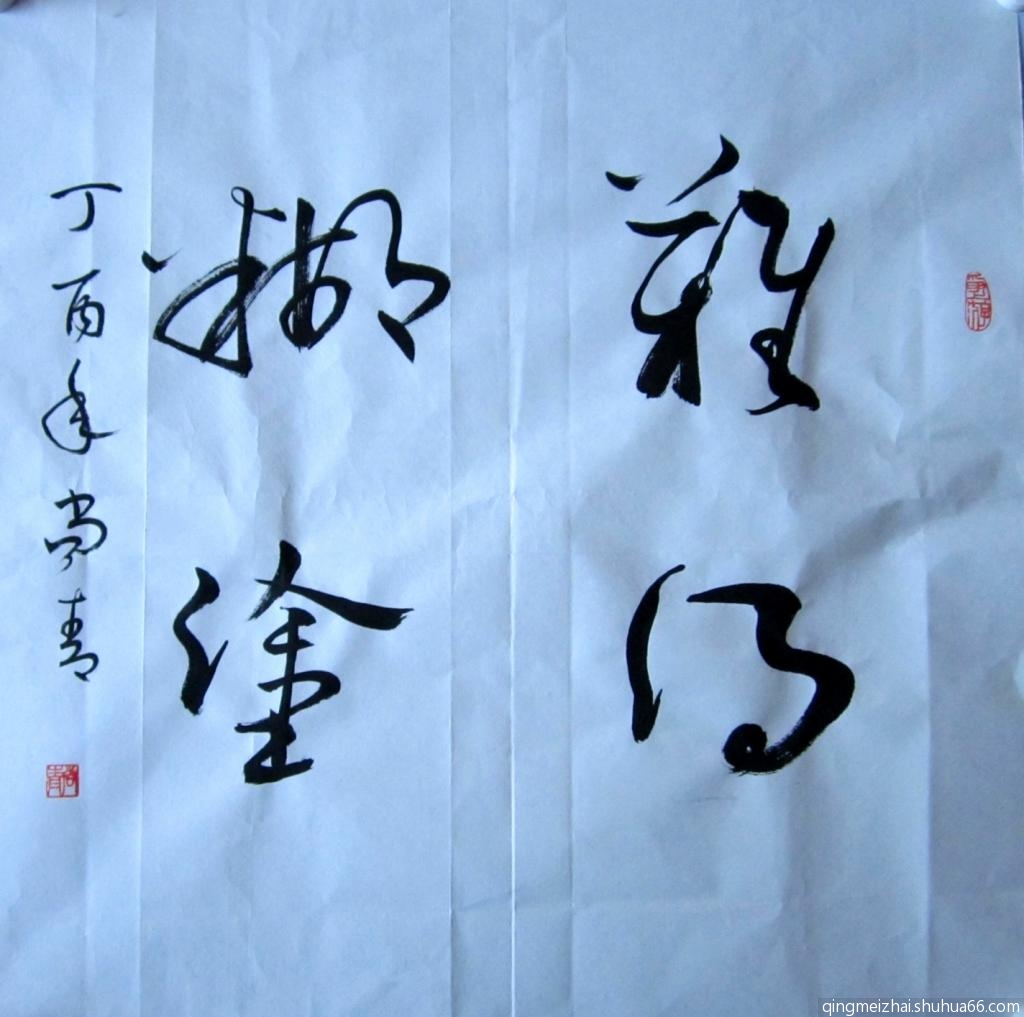 難得
糊塗
丁酉年尚青
尚青
qingmeizhai.shuhua66.com